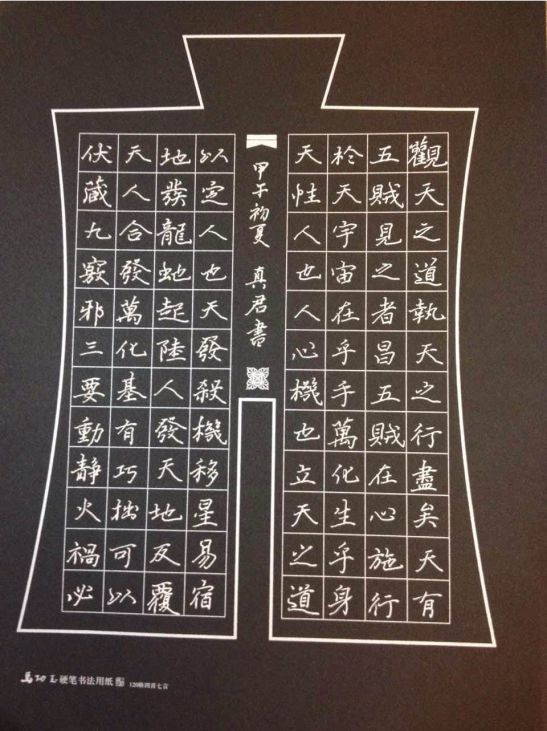 觀天之道執天之行盡矣天有
五賊見之者昌五賊在心施行
於天宇宙在乎手萬化生乎身
天性人也人心機也立天之道
甲午初夏 真君書
以定人也天發殺機移星易宿
地發龍虵起陸人發天地反覆
天人合發萬化基有巧拙可以
伏藏九竅邪三要動靜火禍必
硬笔书法用纸 120格四首七言